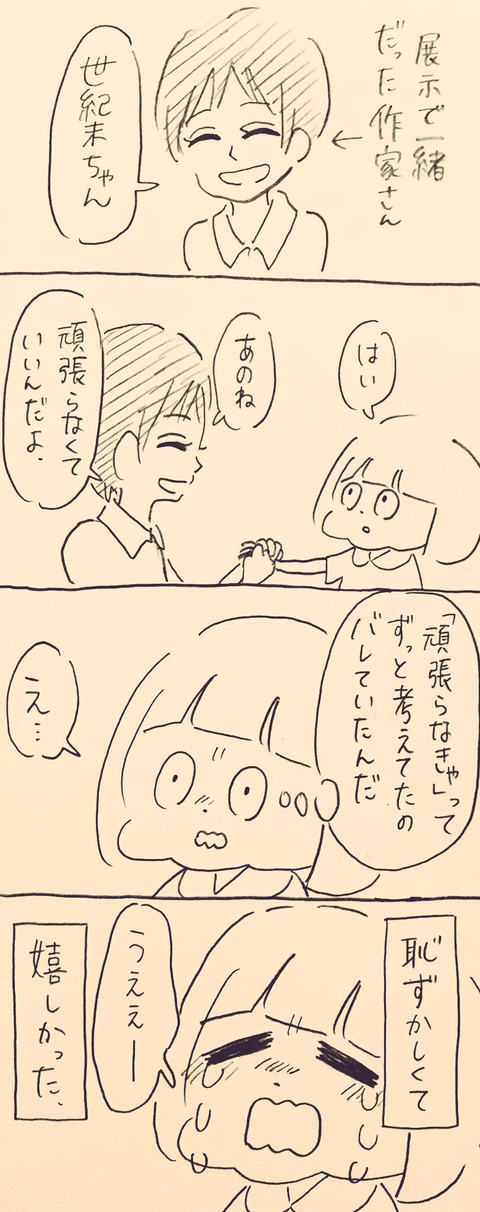 展示で一緒
だった作家さん
世紀末ちゃん
はい
あのね
頑張らなくて
いいんだよ.
「頑張らなきゃ」って
ずっと考えてたの
バレていたんだ
え…
恥ずかしくて
うええー
嬉しかった.